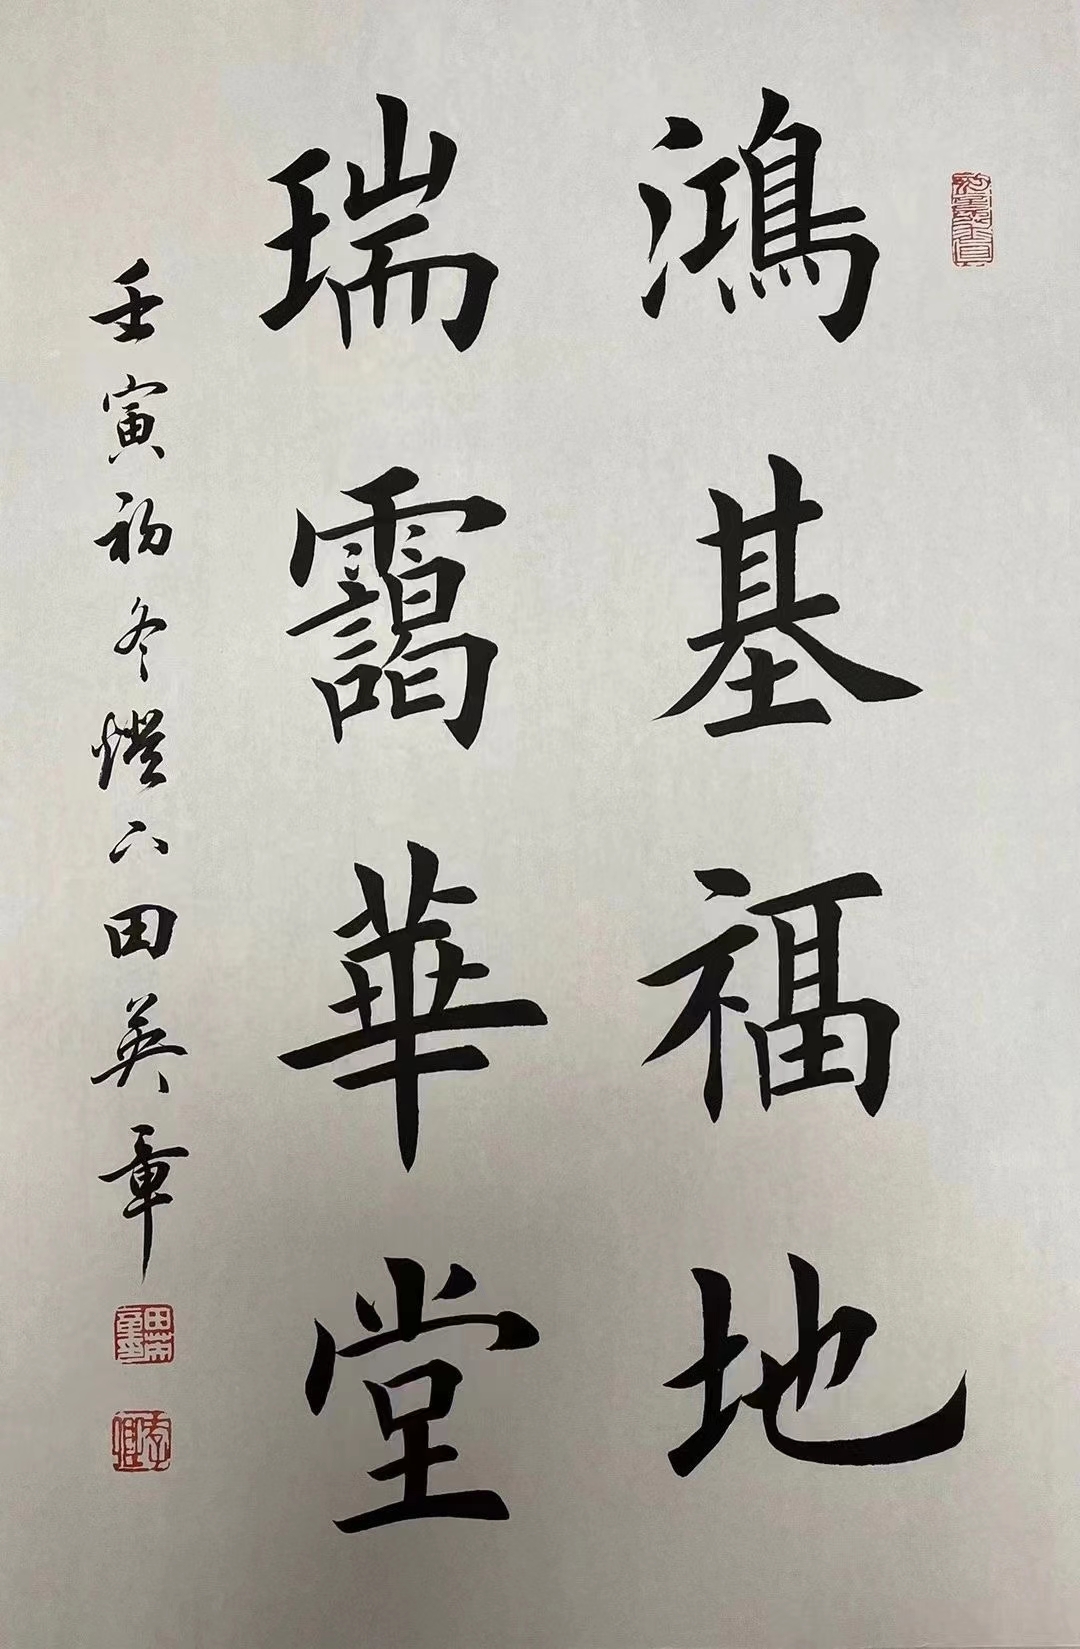 鴻基福地
瑞靄華堂
壬寅初冬燈下田英章